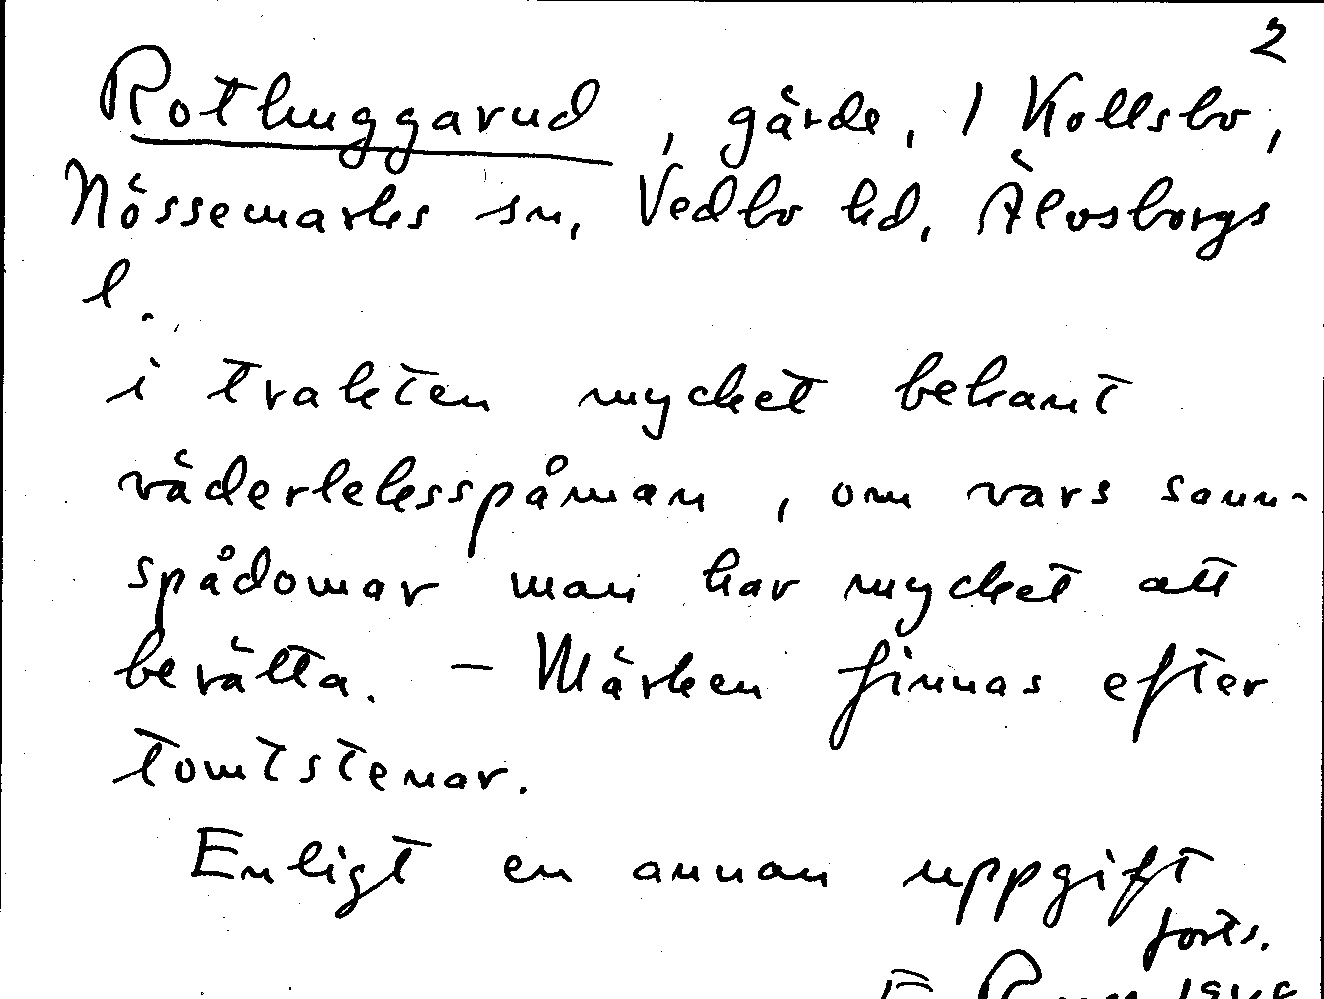 2
Rothuggarud, gärde, 1 Kollsbo,
Nössemarks sn, Vedbo hd, Älvsborgs
l.
i trakten mycket bekant
väderleksspåman, om vars sann-
spådomar man har mycket att
berätta. – Märken finnas efter
tomtstenar.
Enligt en annan uppgift
forts.